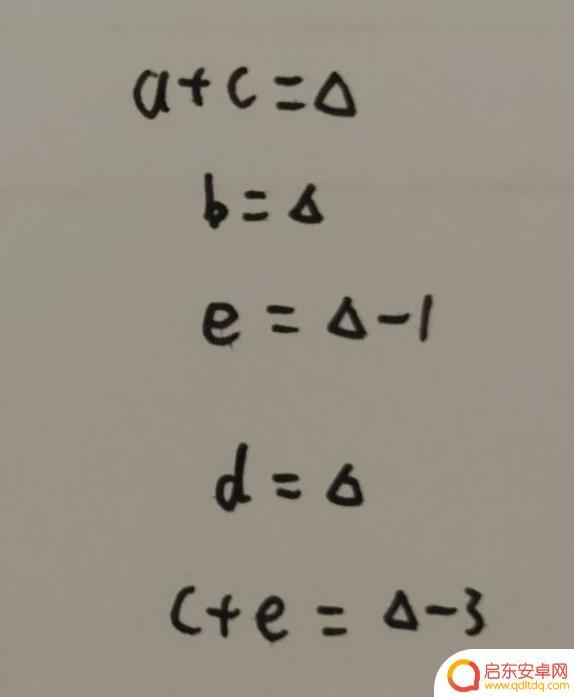 a+c=Δ
b=Δ
e=Δ-1
d=Δ
c+e=Δ-3
启东安卓网
www.qditdq.com